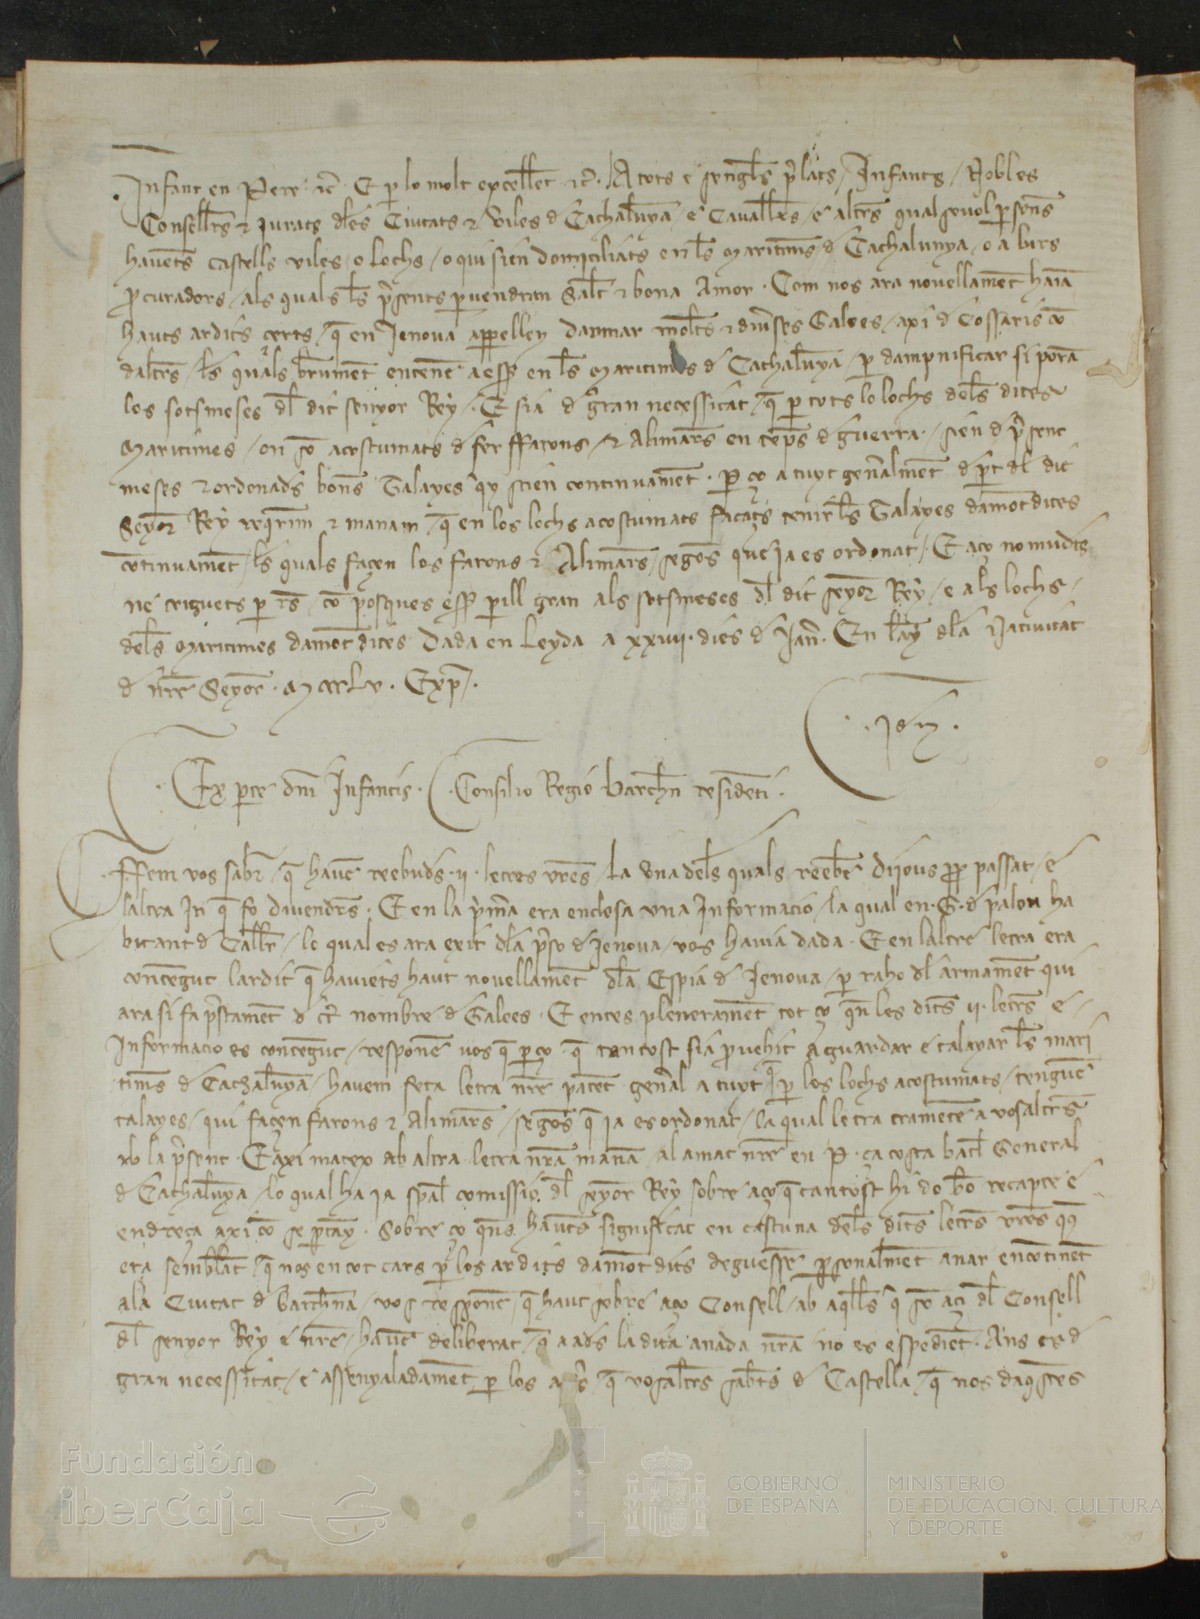 Infant en Pere etc. E per lo molt excellent etc. A tots e sengles prelats / Infants / Nobles
Consellers et Jurats deles Ciutats et Viles de Cathalunya / e Cavallers / e altres qualsevol persones
havents castells viles e lochs / o qui sien domiciliats en les maritimes de Cathalunya / o a lurs
procuradors / als quals les presents pervendran Salut et bona Amor. Com nos ara novellament haiam
hauts ardits certs / que en Jenova appellen darmar moltes et diverses Galees / axi de Cossaris com
daltres / les quals breument entenen a esser en les Maritimes de Cathalunya / per dampnificar si poran
los sotsmeses del dit senyor Rey / E sia de gran necessitat / que per tots los lochs deles dites
Maritimes / on son acostumats de fer ffarons / et Alimares en temps de guerra / sien de present
meses et ordonades bones Talayes qui stien continuament. Per ço a tuyt generalment de part del dit
Senyor Rey requerim et manam / que en los lochs acostumats façats tenir les Talayes damont dites
continuament / les quals façen los farons et Alimares / segons que ja es ordonat / E aço no mudets
ne triguets per res / com posques esser perill gran als sotsmeses del dit senyor Rey / e als lochs /
deles Maritimes damont dites Dada en Leyda a xxiiii. dies de Janer. En lany dela Nativitat
de nostre Senyor. MccLv. Exp.
Idem.
Ex parte domini Infantis. Consilio Regio Barchinone residenti.
Ffem vos saber / que havem reebudes .ii. letres vostres / La una deles quals reebem dijous prop passat / e
laltra In que fo divendres. E en la primera era enclosa una Informacio / la qual en .G. de palou ha
bitant de Caller / lo qual es ara exit dela preso de Jenova / vos havia dada. E en laltre letra era
contengut lardit que haviets haut novellament dela Espia de Jenova / per raho del armament qui
ara si fa prestament de cert nombre de Galees. E enteses plenerament tot ço quen les dites .ii. letres e
Informacio es contengut / responem vos que per ço que tantost sia provehit a guardar e talayar les mari
times de Cathalunya / havem feta letra nostra patent general a tuyt que per los lochs acostumats / tenguen
talayes / qui façen farons et Alimares / segons que ja es ordonat / la qual letra trametem a vosaltres
ab la present. E axi mateix ab altra letra nostra manam al amat nostre en P. ça costa batle General
de Cathalunya / lo qual ha ja special comissio del senyor Rey sobre aço que tantost hi do bo recapte e
endreça axi com se pertany. Sobre ço quens havets significat en cascuna deles dites letres vostres queus
era semblant / que nos en tot cars per los ardits damont dits deguessem personalment anar encontinent
ala Ciutat de Barchinona / vos responem / que haut sobre aço Consell / ab aquells que son aci del Consell
del senyor Rey e nostre / havem deliberat / que a ads la dita anada nostra no es espedient. Ans es de
gran necessitat / e assenyaladament per los afers que vosaltres sabets de Castella / que nos daquestes